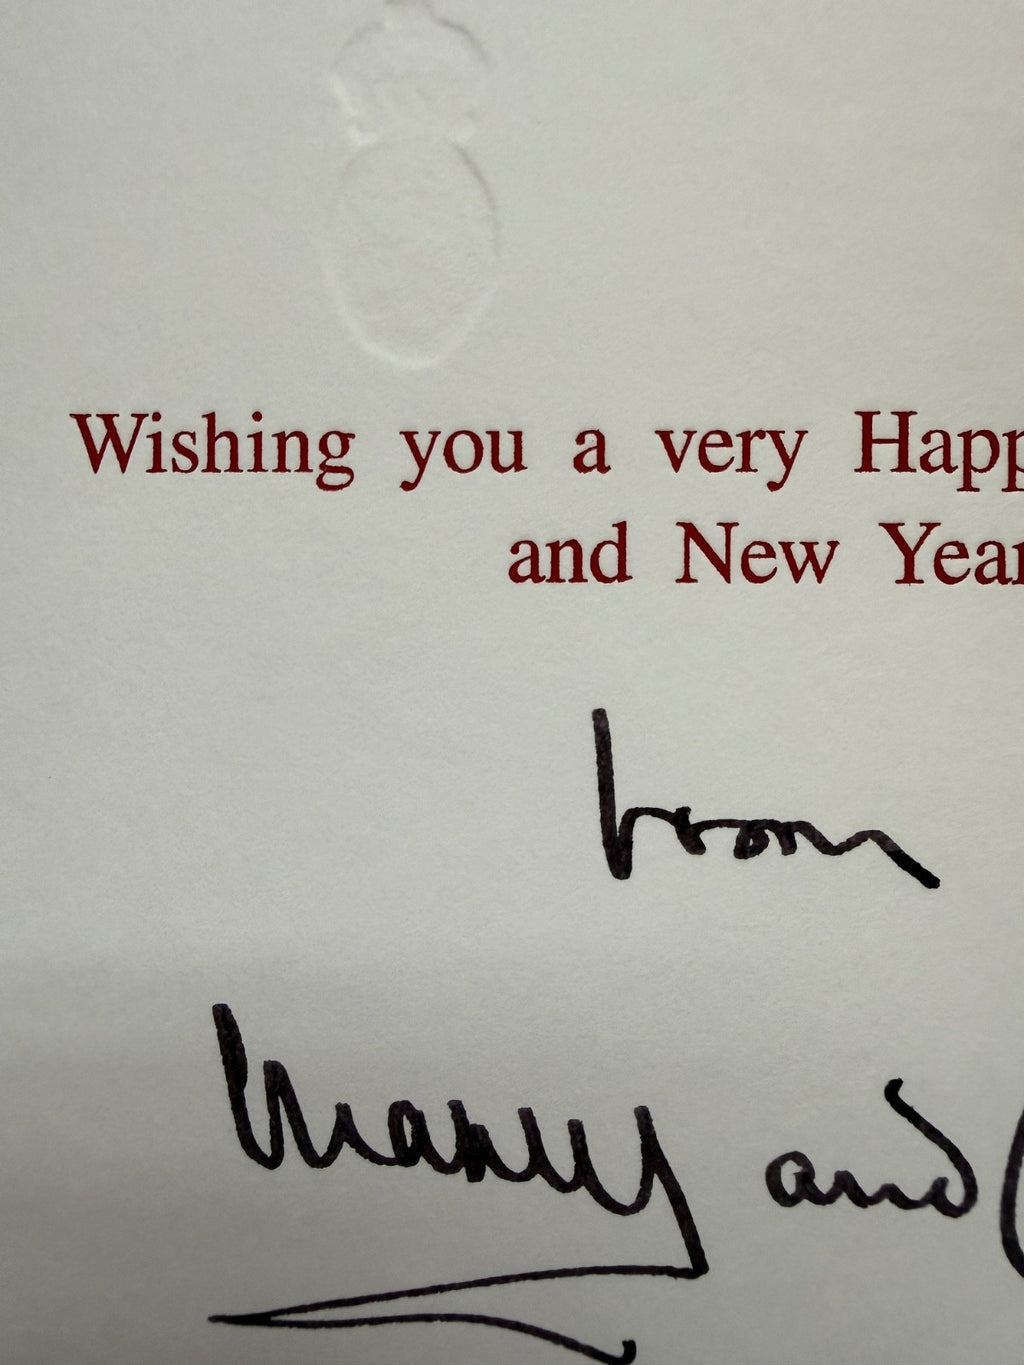 Wishing you a very Happ
and New Year
from
and